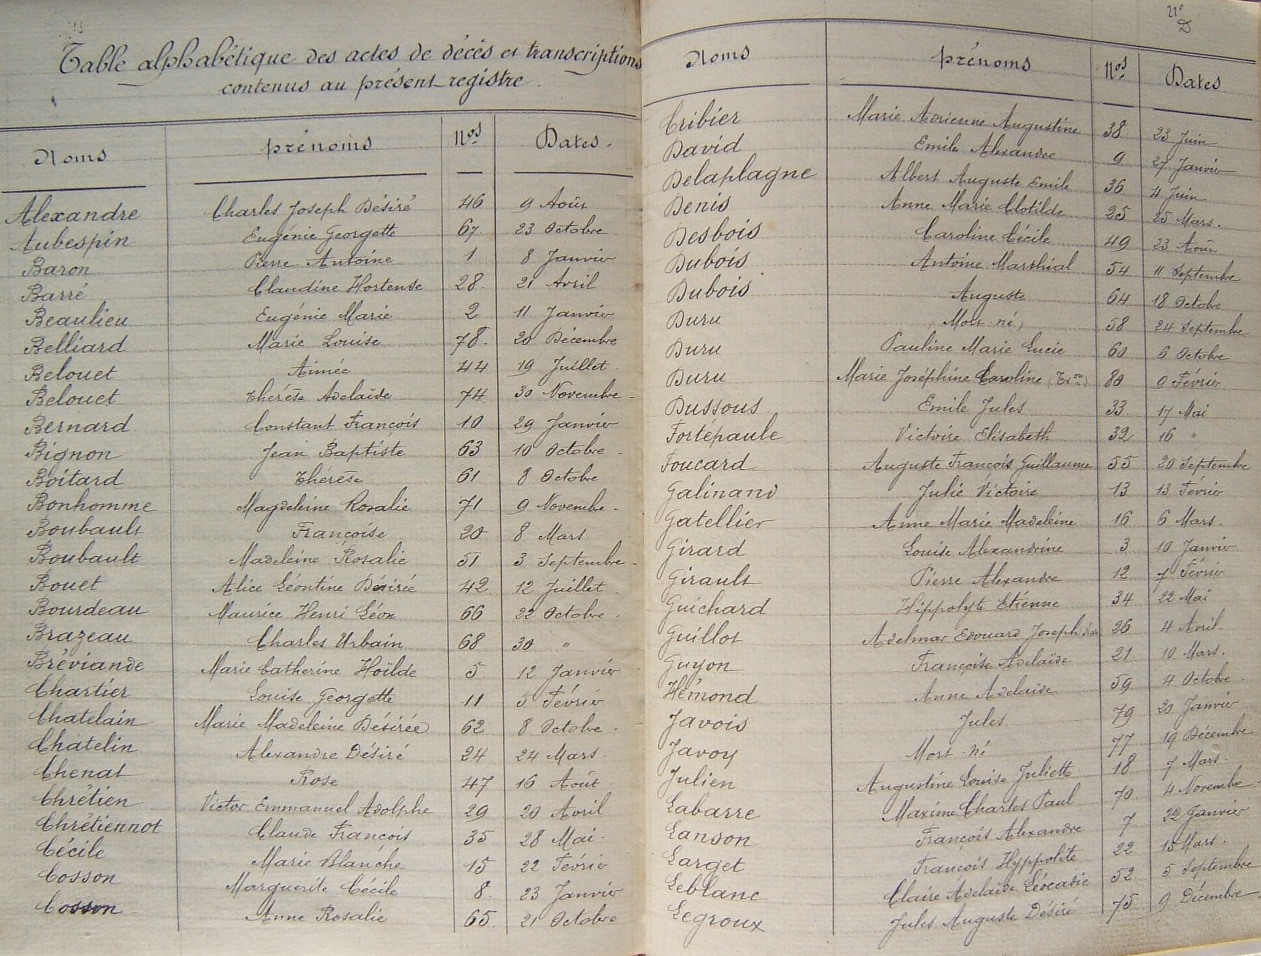 Table alphabétique des actes de décès et transcriptions
contenus au présent registre.
Noms prénoms Nos Dates.
Alexandre Charles Joseph Désiré 46 9 Août
Aubespin Eugénie Georgette 67 23 Octobre
Baron Pierre Antoine 1 8 Janvier
Barré Claudine Hortense 28 21 Avril
Beaulieu Eugénie Marie 2 11 Janvier
Belliard Marie Louise 78. 20 Décembre
Belouet Aimée 44 19 Juillet
Belouet Thérèse Adelaïde 74 30 Novembre
Bernard Constant François 10 29 Janvier
Bignon Jean Baptiste 63 10 Octobre
Boitard Thérèse 61 8 Octobre
Bonhomme Magdeleine Rosalie 71 9 Novembre
Boubault Françoise 20 8 Mars
Boubault Madeleine Rosalie 51 3 Septembre
Bouet Alice Léontine Désirée 42 12 Juillet
Bourdeau Maurice Henri Léon 66 22 Octobre
Brazeau Charles Urbain 68 30 "
Bréviande Marie Catherine Hoïlde 5 12 Janvier
Chartier Louise Georgette 11 5 Février
Chatelain Marie Madeleine Désirée 62 8 Octobre
Chatelin Alexandre Désiré 24 24 Mars
Chenat Rose 47 16 Août
Chrétien Victor Emmanuel Adolphe 29 20 Avril
Chrétiennot Claude François 35 28 Mai
Cécile Marie Blanche 15 22 Février
Cosson Marguerite Cécile 8. 23 Janvier
Cosson Anne Rosalie 65. 21 Octobre
21e
D
Noms prénoms Nos Dates
Cribier Marie Adrienne Augustine 38 23 Juin
David Emile Alexandre 9 27 Janvier
Delaplagne Albert Auguste Emile 36 4 Juin
Denis Anne Marie Clotilde 25 25 Mars.
Desbois Caroline Cécile 49 23 Août
Dubois Antoine Marshial 54 11 Septembre
Dubois Auguste 64 18 Octobre
Duru (Mort-né) 58 24 Septembre
Duru Pauline Marie Lucie 60 6 Octobre
Duru Marie Joséphine Caroline 80 9 Février
Dussous Emile Jules 33 17 Mai
Fortépaule Victoire Elisabeth 32 16 "
Foucard Auguste François Guillaume 55 20 Septembre
Galinand Julie Victoire 13 13 Février
Gatellier Anne Marie Madeleine 16 6 Mars.
Girard Louise Alexandrine 3 10 Janvier
Girault Pierre Alexandre 12 7 Février
Guichard Hippolyte Etienne 34 22 Mai
Guillot Adelmar Edouard Joseph 26 4 Avril
Guyon Françoise Adelaïde 21 10 Mars.
Hémond Anne Adelaïde 59 4 Octobre
Javois Jules 79 20 Janvier
Javoy Mort-né 77 19 Décembre
Julien Augustine Louise Juliette 18 7 Mars
Labarre Maxime Charles Paul 70 4 Novembre
Lanson François Alexandre 7 22 Janvier
Larget François Hyppolite 22 15 Mars.
Leblanc Claire Adelaïde Léocadie 52 5 Septembre
Legroux Jules Auguste Désiré 75. 9 Décembre